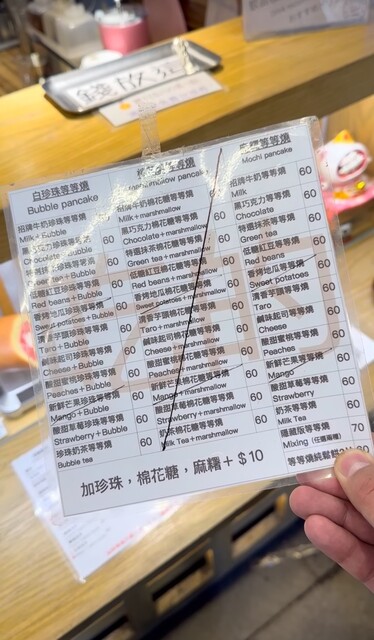 錢放這
白珍珠等等燒
Bubble pancake
招牌牛奶珍珠等等燒
Milk + Bubble
60
黑巧克力珍珠等等燒
Chocolate + Bubble
60
特選抹茶珍珠等等燒
Green tea + Bubble
60
低醣紅豆珍珠等等燒
Red beans + Bubble
60
香烤地瓜珍珠等等燒
Sweet potatoes + Bubble
60
清香芋頭珍珠等等燒
Taro + Bubble
60
鹹味起司珍珠等等燒
Cheese + Bubble
60
酸甜蜜桃珍珠等等燒
Peaches + Bubble
60
新鮮芒果珍珠等等燒
Mango + Bubble
60
酸甜草莓珍珠等等燒
Strawberry + Bubble
60
珍珠奶茶等等燒
Bubble tea
60
等等燒
Marshmallow pancake
招牌牛奶棉花等等燒
Milk + marshmallow
60
黑巧克力棉花等等燒
Chocolate + marshmallow
60
特選抹茶棉花等等燒
Green tea + marshmallow
60
低醣紅豆棉花等等燒
Red beans + marshmallow
60
香烤地瓜棉花等等燒
Sweet potatoes + marshmallow
60
清香芋頭棉花等等燒
Taro + marshmallow
60
鹹味起司棉花等等燒
Cheese + marshmallow
60
酸甜蜜桃棉花等等燒
Peaches + marshmallow
60
新鮮芒果棉花等等燒
Mango + marshmallow
60
酸甜草莓棉花等等燒
Strawberry + marshmallow
60
奶茶棉花等等燒
Milk Tea + marshmallow
60
麻糬等等燒
Mochi pancake
招牌牛奶等等燒
Milk
60
黑巧克力等等燒
Chocolate
60
特選抹茶等等燒
Green tea
60
低醣紅豆等等燒
Red beans
60
香烤地瓜等等燒
Sweet potatoes
60
清香芋頭等等燒
Taro
60
鹹味起司等等燒
Cheese
60
酸甜蜜桃等等燒
Peaches
60
新鮮芒果等等燒
Mango
60
酸甜草莓等等燒
Strawberry
60
奶茶等等燒
Milk Tea
60
隱藏版等等燒
Mixing (任選兩種)
70
等等燒純鬆餅
加珍珠，棉花糖，麻糬+$10